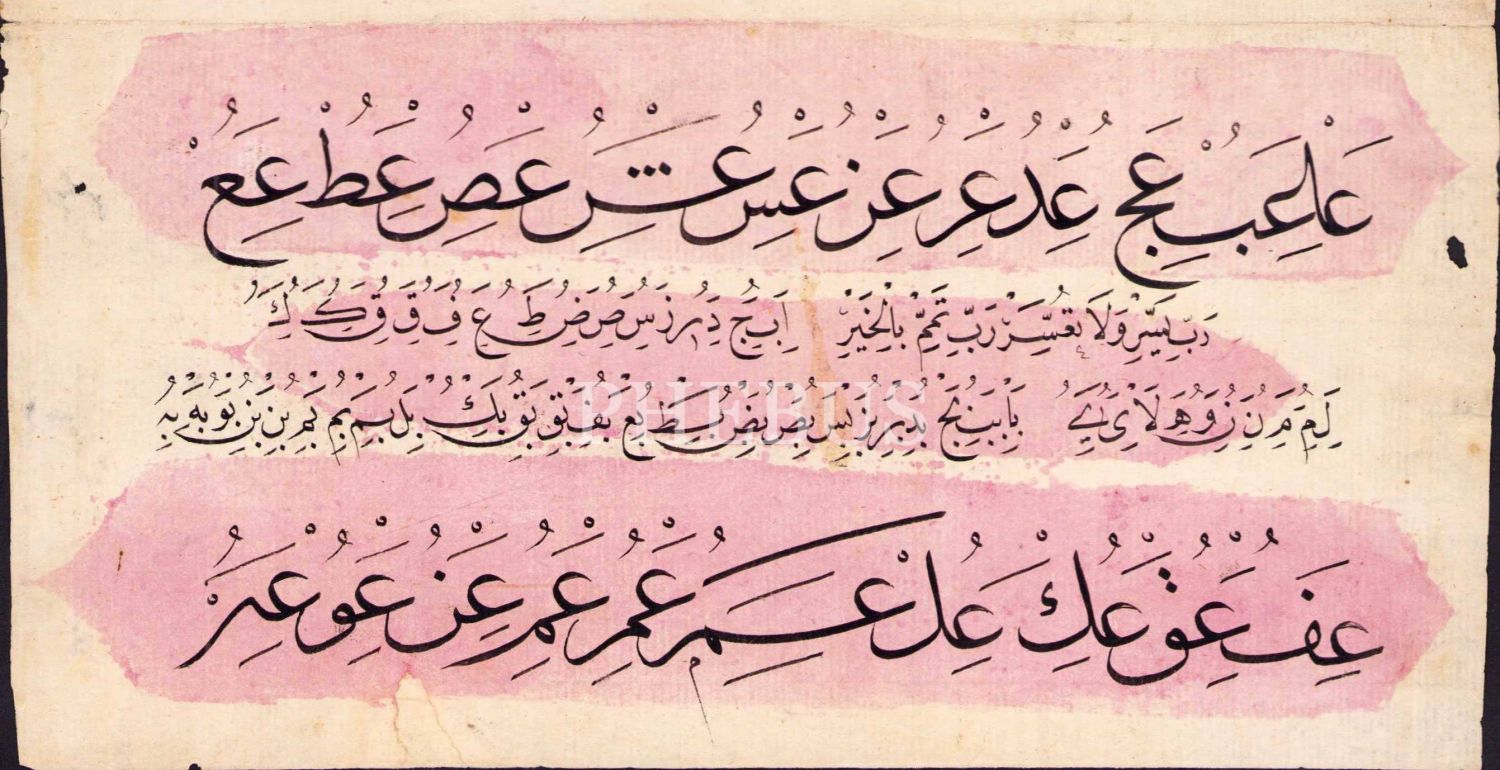 عا عب عج عد عر عز عس عش عص عط عع
رَبِّ يَسِّرْ وَلَا تُعَسِّرْ رَبِّ تَمِّمْ بِالْخَيْرِ ا ب ج د ر ز س ص ض ط ع ف ق ق ك ك
ل م م ن ن و ه لا ى ي با بب بج بد بر بز بس بص بض بط بع بف بق بق بك بل بم بم بم بن بن بو به به
PHEBUS
عف عق عك عل عم عم عم عن عو عه